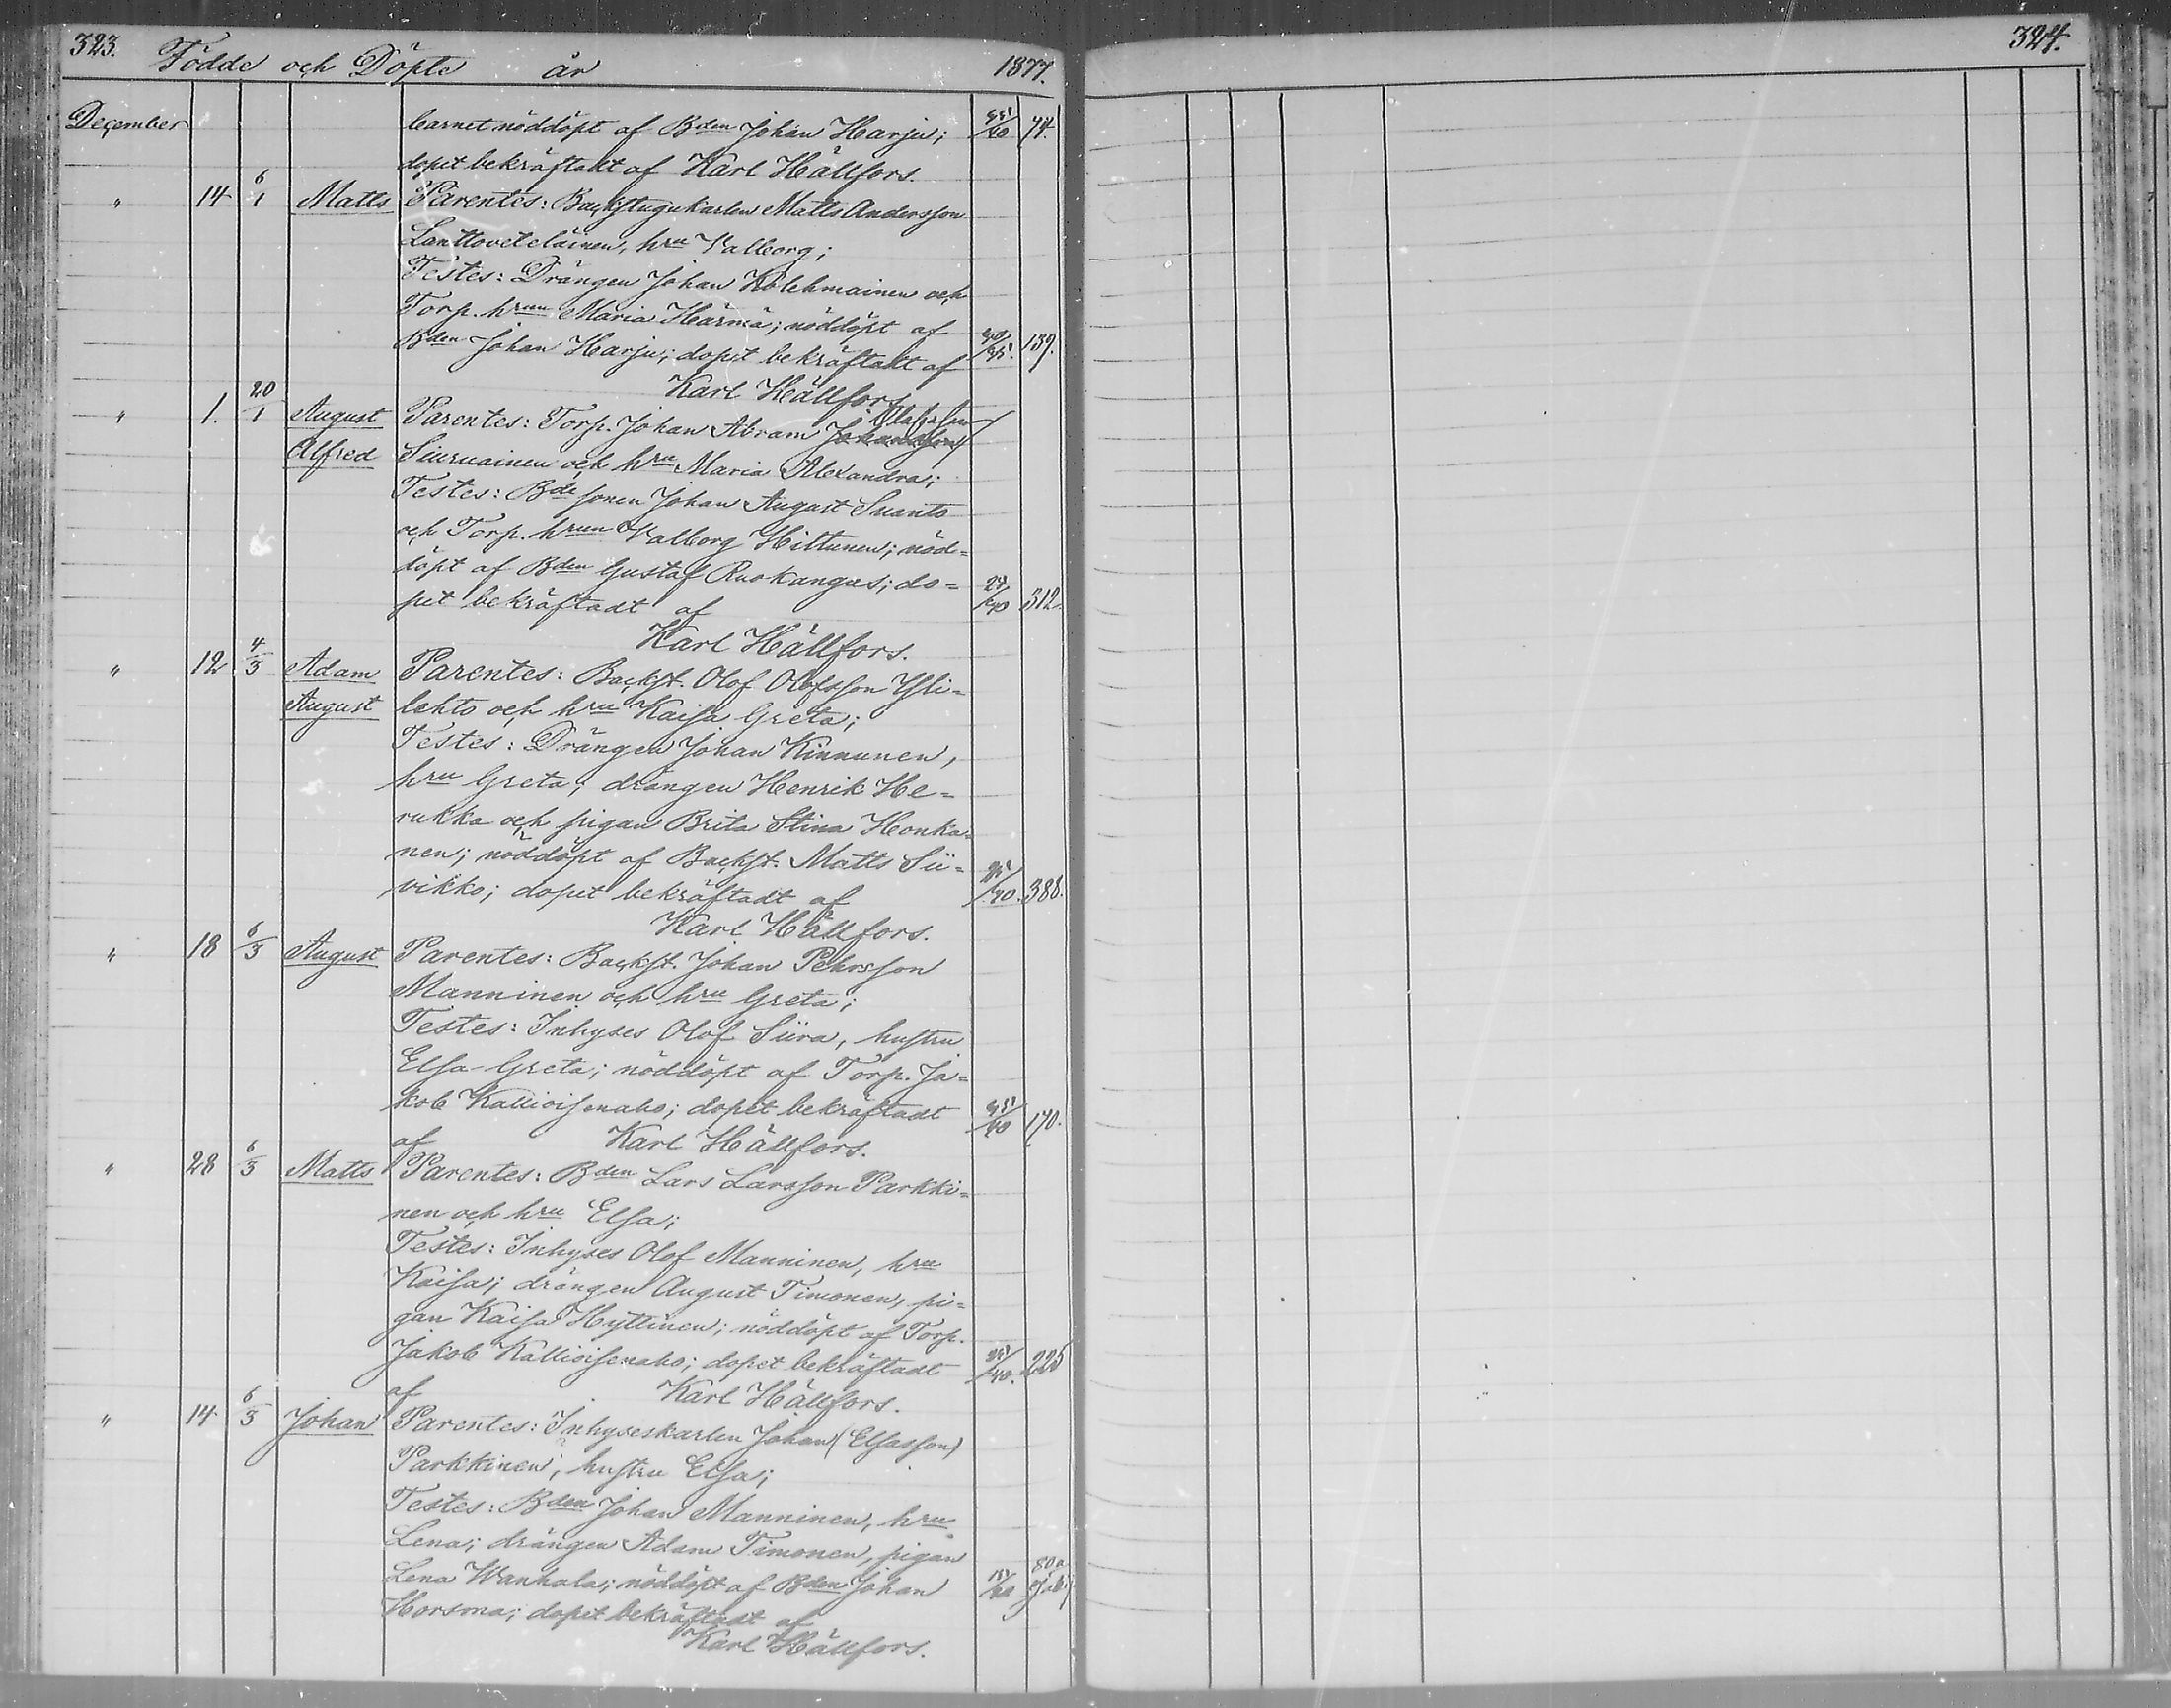 323. Födde och Döpte år 1877.
December barnet nöddöpt af Bden Johan Harju; 35/40 74.
dopet bekräftadt af Karl Hällfors.
" 14 6/1 Matts Parentes: Backstugukarlen Matts Andersson
Lanttoveteläinen, hru Valborg;
Testes: Drängen Johan Kolehmainen och
Torp. hrun Maria Härmä; nöddöpt af
Bden Johan Harju; dopet bekräftadt af 30/35. 139.
Karl Hällfors
" 1. 20/1 August Parentes: Torp. Johan Abram Johansson
Alfred Siuruainen och hru Maria Alexandra;
Testes: Bde sonen Johan August Suanto
och Torp. hrun Valborg Hiltunen; nöd-
döpt af Bden Gustaf Ruokangas; do-
pet bekräftadt af 312.
Karl Hällfors.
" 12 4/3 Adam Parentes: Backst. Olof Olofsson Yli-
August lehto och hru Kaisa Greta;
Testes: Drängen Johan Kinnunen,
hru Greta; drängen Henrik He-
rukka och pigan Brita Stina Honka-
nen; nöddöpt af Backst. Matts Sii-
vikko; dopet bekräftadt af 388.
Karl Hällfors.
" 18 6/3 August Parentes: Backst. Johan Pehrsson
Manninen och hru Greta;
Testes: Inhyses Olof Siira, hustru
Elsa Greta; nöddöpt af Torp. Ja-
kob Kallioisenaho; dopet bekräftadt 35/40 170.
af Karl Hällfors.
" 28 6/3 Matts Parentes: Bden Lars Larsson Parkki-
nen och hru Elsa;
Testes: Inhyses Olof Manninen, hru
Kaisa; drängen August Timonen, pi-
gan Kaisa Hyttinen; nöddöpt af Torp.
Jakob Kallioisenaho; dopet bekräftadt 225
af Karl Hällfors.
" 14 6/3 Johan Parentes: Inhyseskarlen Johan (Elsasson)
Parkkinen, hustru Elsa;
Testes: Bden Johan Manninen, hru
Lena; drängen Adam Timonen, pigan
Lena Wanhala; nöddöpt af Bden Johan 80a
Horsma; dopet bekräftadt af
Karl Hällfors.
324.